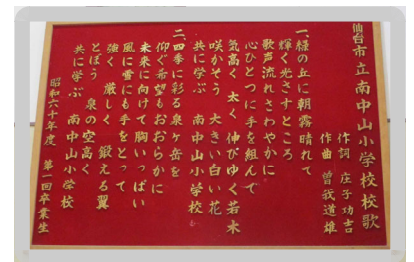 仙台市立南中山小学校校歌
作詞 庄子功吉
作曲 曽我道雄
一、緑の丘に朝霧晴れて
輝く光さすところ
歌声流れさわやかに
心ひとつに手を組んで
気高く 太く 伸びゆく若木
咲かそう 大きい白い花
共に学ぶ 南中山小学校
二、四季に彩る泉ヶ岳を
仰ぐ希望もおおらかに
未来に向けて胸いっぱい
風に雪にも手をとって
強く 厳しく 鍛える翼
とぼう 泉の空高く
共に学ぶ 南中山小学校
昭和六十年度 第一回卒業生